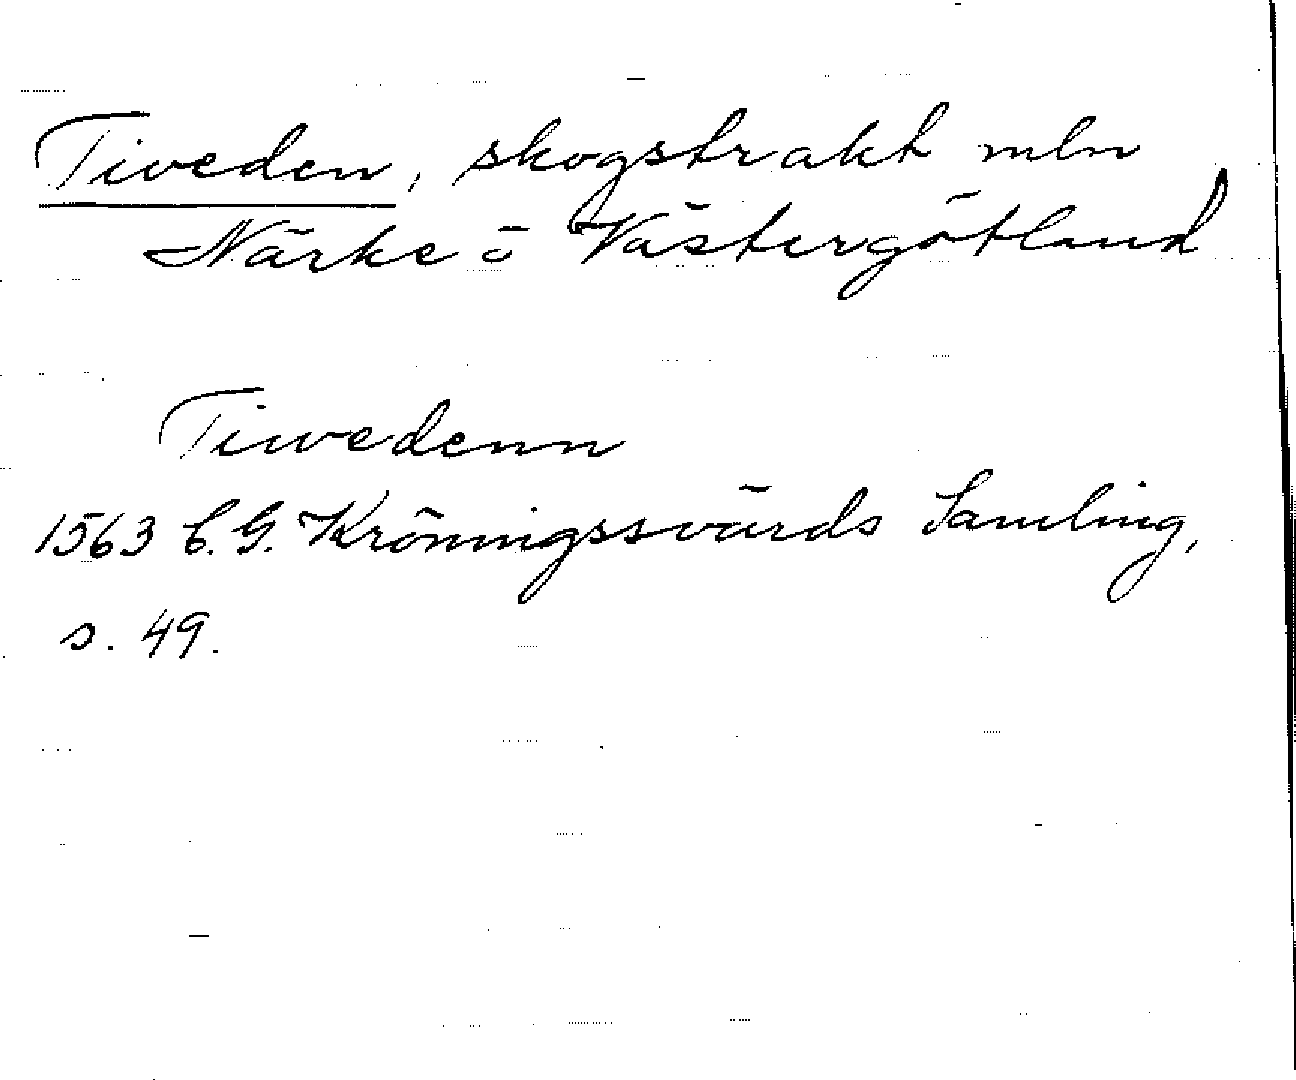 Tiveden, skogstrakt mln
Närke o Västergötland
Tiwedenn
1563 C. G. Kröningssvärds Samling,
s. 49.